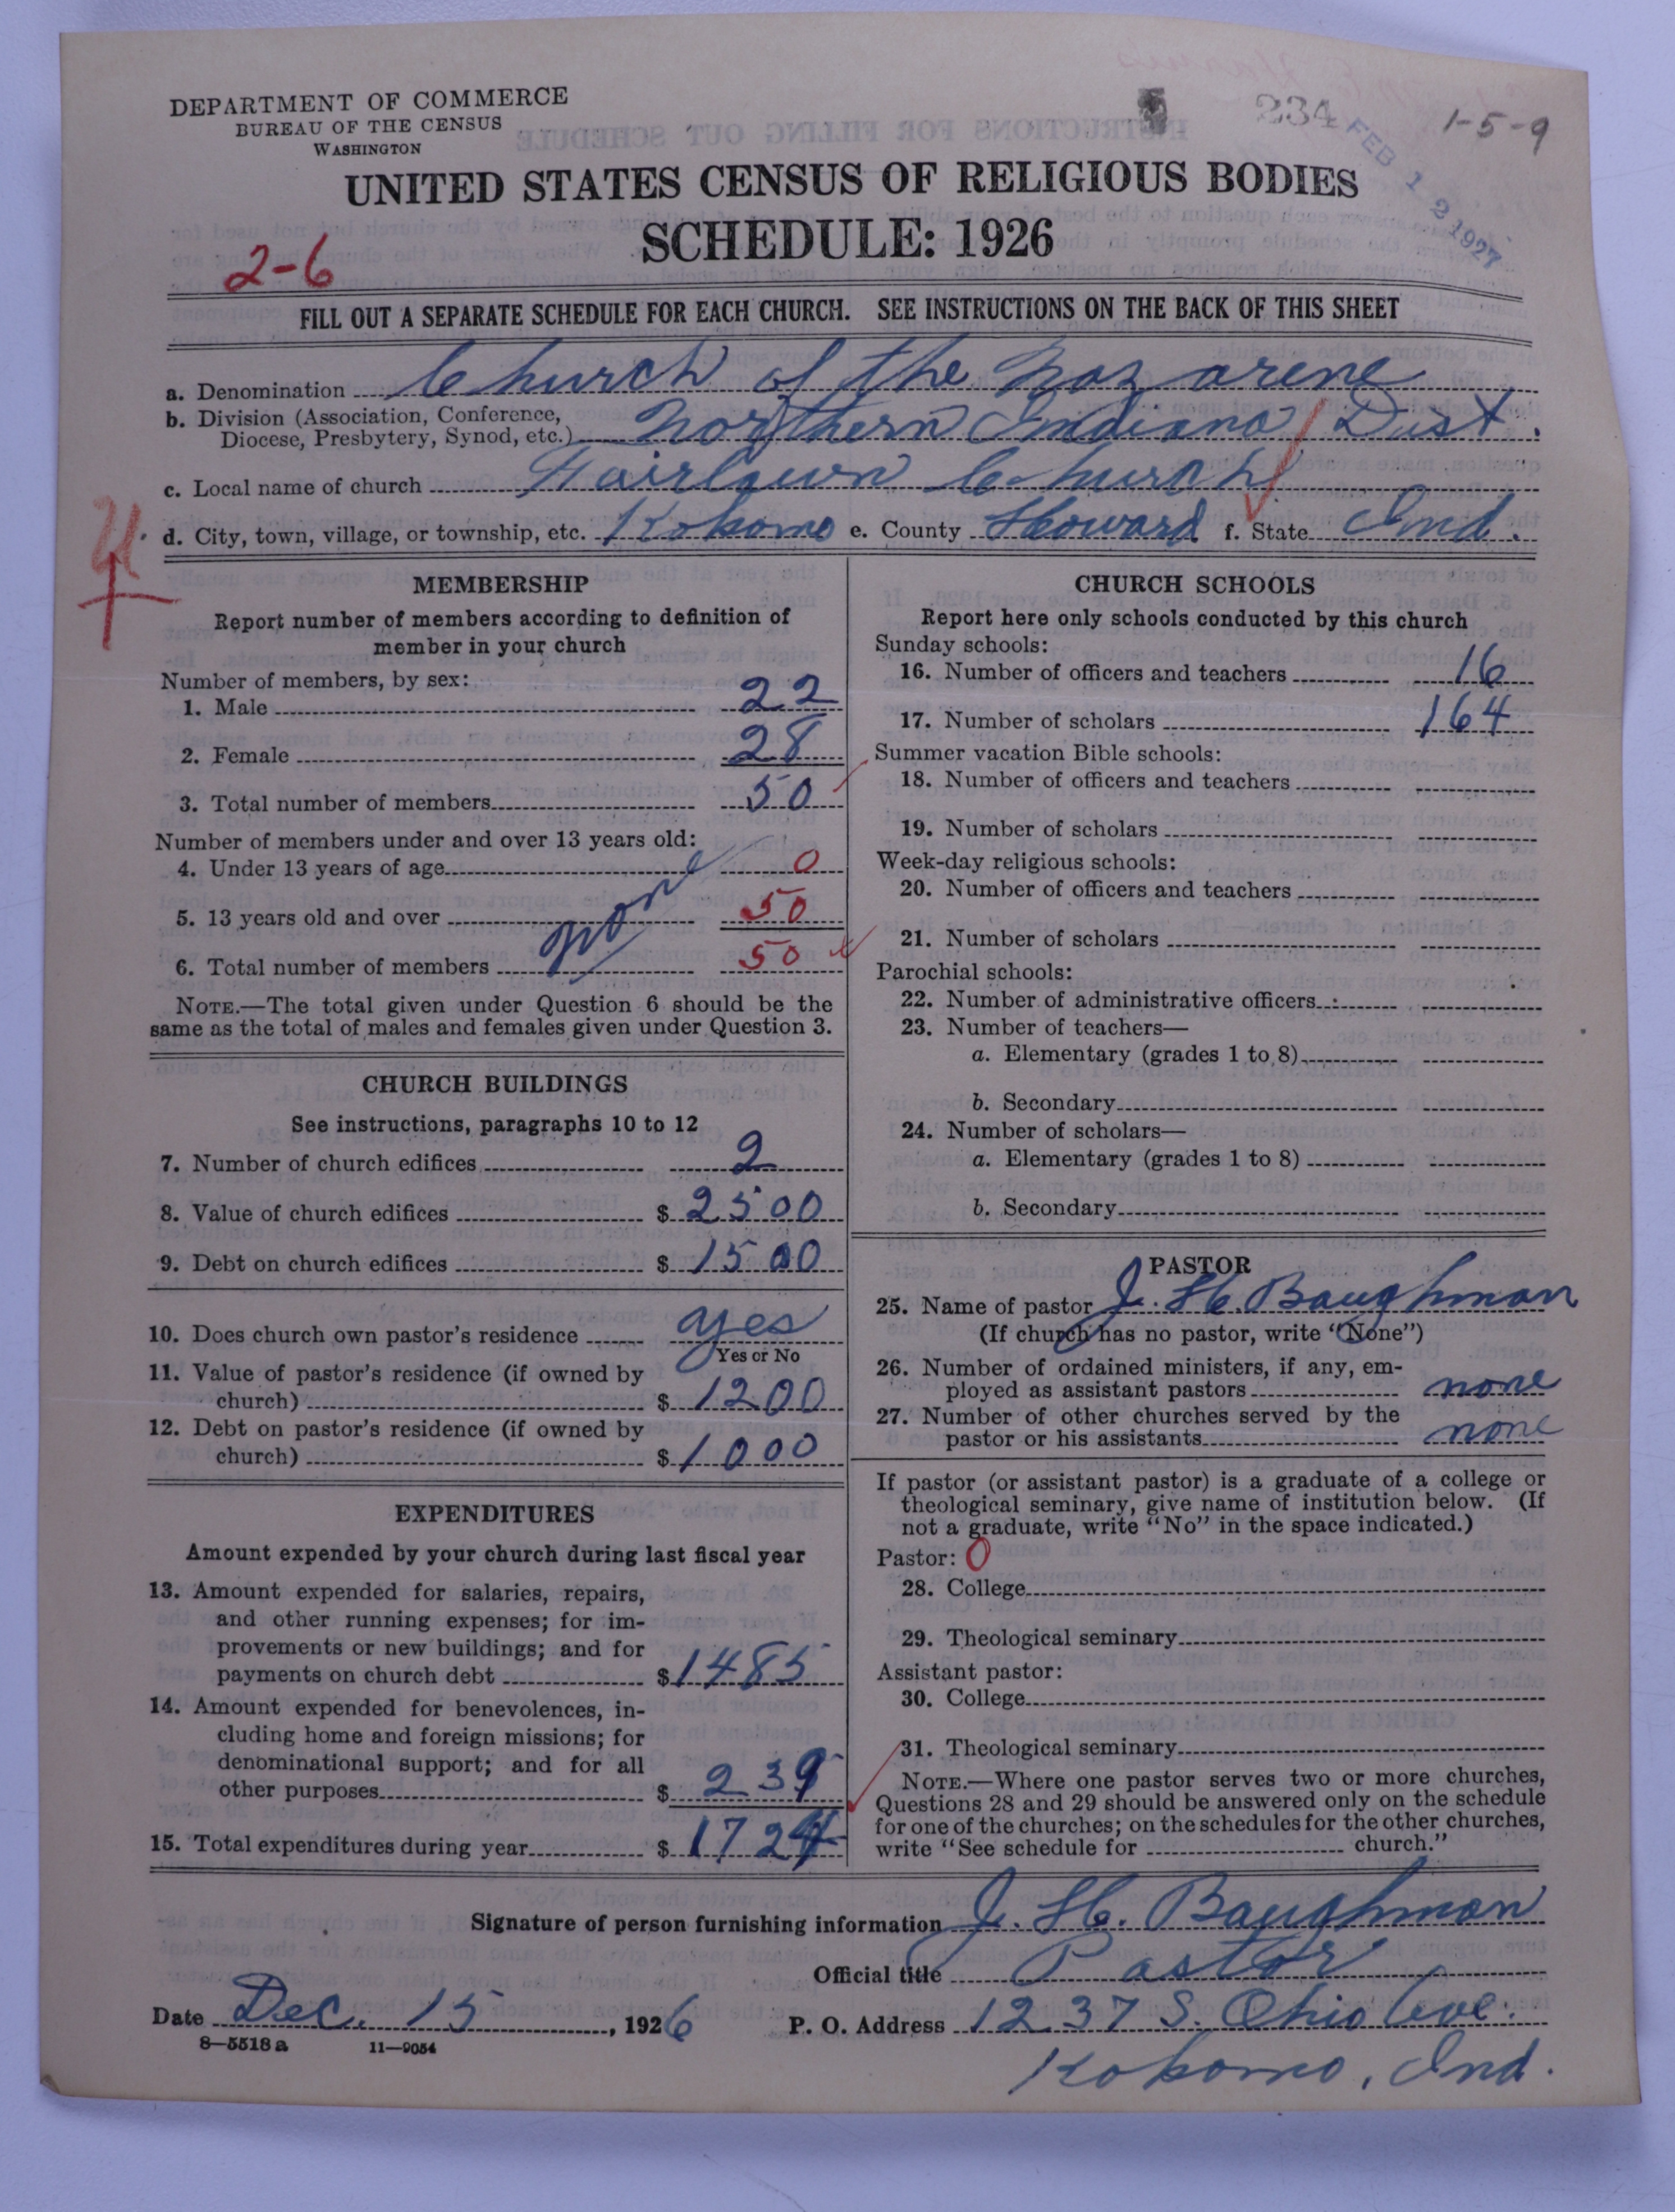 DEPARTMENT OF COMMERCE
BUREAU OF THE CENSUS
WASHINGTON
234
FEB 12 1927
1-5-9
UNITED STATES CENSUS OF RELIGIOUS BODIES
SCHEDULE: 1926
2-6
FILL OUT A SEPARATE SCHEDULE FOR EACH CHURCH. SEE INSTRUCTIONS ON THE BACK OF THIS SHEET
a. Denomination Church of the Nazarene
b. Division (Association, Conference,
Diocese, Presbytery, Synod, etc.) Northern Indiana Dist.
c. Local name of church Fairlawn Church
d. City, town, village, or township, etc. Kokomo e. County Howard f. State Ind.
MEMBERSHIP
Report number of members according to definition of
member in your church
Number of members, by sex:
1. Male 22
2. Female 28
3. Total number of members 50
Number of members under and over 13 years old:
4. Under 13 years of age 0
5. 13 years old and over none 50
6. Total number of members 50
NOTE.—The total given under Question 6 should be the
same as the total of males and females given under Question 3.
CHURCH BUILDINGS
See instructions, paragraphs 10 to 12
7. Number of church edifices 2
8. Value of church edifices $ 2500
9. Debt on church edifices $ 1500
10. Does church own pastor's residence yes
Yes or No
11. Value of pastor's residence (if owned by
church) $ 1200
12. Debt on pastor's residence (if owned by
church) $ 1000
EXPENDITURES
Amount expended by your church during last fiscal year
13. Amount expended for salaries, repairs,
and other running expenses; for im-
provements or new buildings; and for
payments on church debt $ 1485
14. Amount expended for benevolences, in-
cluding home and foreign missions; for
denominational support; and for all
other purposes $ 239
15. Total expenditures during year $ 1724
CHURCH SCHOOLS
Report here only schools conducted by this church
Sunday schools:
16. Number of officers and teachers 16
17. Number of scholars 164
Summer vacation Bible schools:
18. Number of officers and teachers
19. Number of scholars
Week-day religious schools:
20. Number of officers and teachers
21. Number of scholars
Parochial schools:
22. Number of administrative officers
23. Number of teachers—
a. Elementary (grades 1 to 8)
b. Secondary
24. Number of scholars—
a. Elementary (grades 1 to 8)
b. Secondary
PASTOR
25. Name of pastor J. H. Baughman
(If church has no pastor, write "None")
26. Number of ordained ministers, if any, em-
ployed as assistant pastors none
27. Number of other churches served by the
pastor or his assistants none
If pastor (or assistant pastor) is a graduate of a college or
theological seminary, give name of institution below. (If
not a graduate, write "No" in the space indicated.)
Pastor: 0
28. College
29. Theological seminary
Assistant pastor:
30. College
31. Theological seminary
NOTE.—Where one pastor serves two or more churches,
Questions 28 and 29 should be answered only on the schedule
for one of the churches; on the schedules for the other churches,
write "See schedule for church."
Signature of person furnishing information J. H. Baughman
Official title Pastor
Date Dec. 15, 1926 P. O. Address 1237 S. Ohio Ave.
8—5518a 11—9054
Kokomo, Ind.